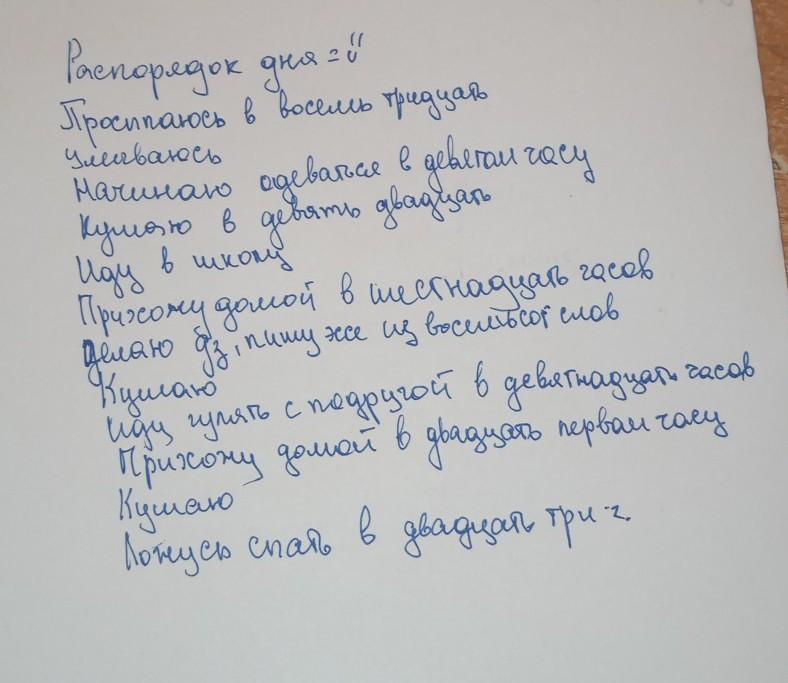 Распорядок дня =
Просыпаюсь в восемь тридцать
Умываюсь
Начинаю одеваться в девятом часу
Кушаю в девять двадцать
Иду в школу
Прихожу домой в шестнадцать часов
Делаю дз, пишу из восемьсот слов
Кушаю
Иду гулять с подругой в девятнадцать часов
Прихожу домой в двадцать первом часу
Кушаю
Ложусь спать в двадцать три ч.